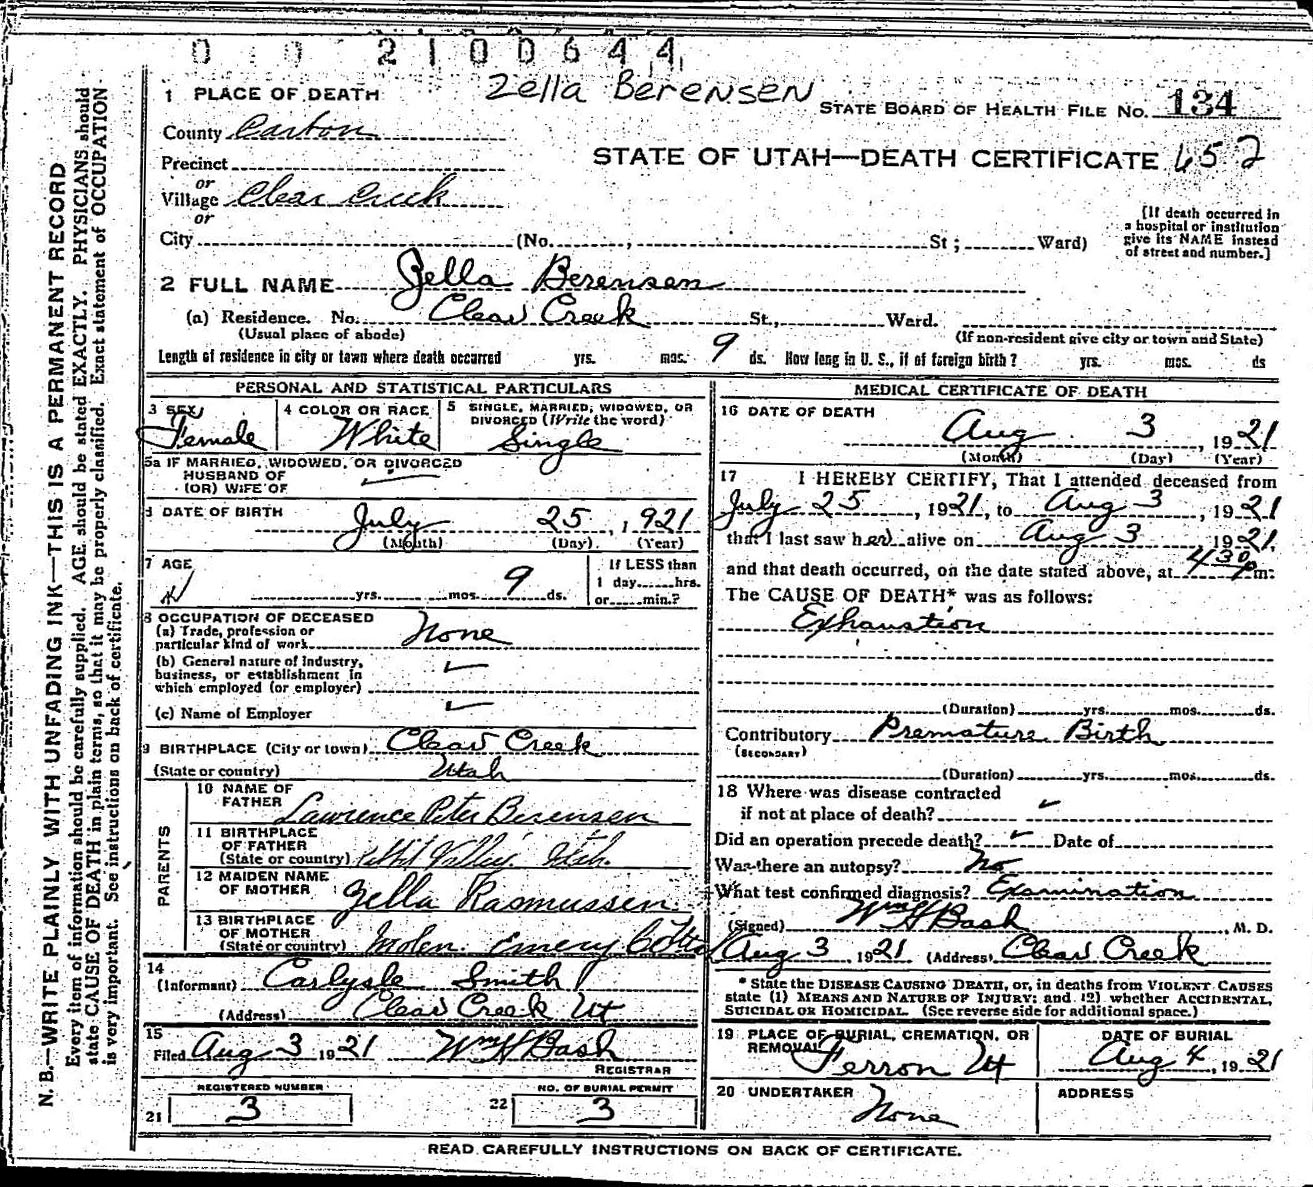 0 0 2100644
Zella Berensen
1 PLACE OF DEATH
STATE BOARD OF HEALTH FILE No. 134
County Carbon
STATE OF UTAH—DEATH CERTIFICATE 652
Precinct
or
Village Clear Creek
or
City (No. , St ; Ward)
[If death occurred in
a hospital or institution
give its NAME instead
of street and number.]
2 FULL NAME Zella Berensen
(a) Residence. No. Clear Creek St., Ward.
(Usual place of abode) (If non-resident give city or town and State)
Length of residence in city or town where death occurred yrs. mos. 9 ds. How long in U. S., if of foreign birth? yrs. mos. ds
PERSONAL AND STATISTICAL PARTICULARS
3 SEX Female
4 COLOR OR RACE White
5 SINGLE, MARRIED, WIDOWED, OR
DIVORCED (Write the word)
Single
5a IF MARRIED, WIDOWED, OR DIVORCED
HUSBAND OF
(OR) WIFE OF
DATE OF BIRTH July 25, 1921
(Month) (Day) (Year)
7 AGE
yrs. mos. 9 ds.
If LESS than
1 day hrs.
or min.?
8 OCCUPATION OF DECEASED
(a) Trade, profession or
particular kind of work None
(b) General nature of Industry,
business, or establishment in
which employed (or employer)
(c) Name of Employer
9 BIRTHPLACE (City or town) Clear Creek
(State or country) Utah
PARENTS
10 NAME OF
FATHER Lawrence Peter Berensen
11 BIRTHPLACE
OF FATHER
(State or country) Valley Utah.
12 MAIDEN NAME
OF MOTHER Zella Rasmussen
13 BIRTHPLACE
OF MOTHER
(State or country) Molen. Emery Co Utah
14
(Informant) Carlysle Smith
(Address) Clear Creek Ut
15
Filed Aug 3 1921 Wm H Bash
REGISTRAR
REGISTERED NUMBER
21 3
NO. OF BURIAL PERMIT
22 3
MEDICAL CERTIFICATE OF DEATH
16 DATE OF DEATH
Aug 3, 1921
(Month) (Day) (Year)
17 I HEREBY CERTIFY, That I attended deceased from
July 25, 1921, to Aug 3, 1921
that I last saw her alive on Aug 3 1921,
and that death occurred, on the date stated above, at 430 p m.
The CAUSE OF DEATH* was as follows:
Exhaustion
(Duration) yrs. mos. ds.
Contributory Premature Birth
(SECONDARY)
(Duration) yrs. mos. ds.
18 Where was disease contracted
if not at place of death?
Did an operation precede death? Date of
Was there an autopsy? No
What test confirmed diagnosis? Examination
(Signed) Wm H Bash, M. D.
Aug 3, 1921 (Address) Clear Creek
* State the DISEASE CAUSING DEATH, or, in deaths from VIOLENT CAUSES
state (1) MEANS AND NATURE OF INJURY; and (2) whether ACCIDENTAL,
SUICIDAL OR HOMICIDAL. (See reverse side for additional space.)
19 PLACE OF BURIAL, CREMATION, OR
REMOVAL Ferron Ut
DATE OF BURIAL
Aug 4, 1921
20 UNDERTAKER None
ADDRESS
READ CAREFULLY INSTRUCTIONS ON BACK OF CERTIFICATE.
N. B.—WRITE PLAINLY WITH UNFADING INK—THIS IS A PERMANENT RECORD
Every item of information should be carefully supplied. AGE should be stated EXACTLY. PHYSICIANS should
state CAUSE OF DEATH in plain terms, so that it may be properly classified. Exact statement of OCCUPATION
is very important. See instructions on back of certificate.